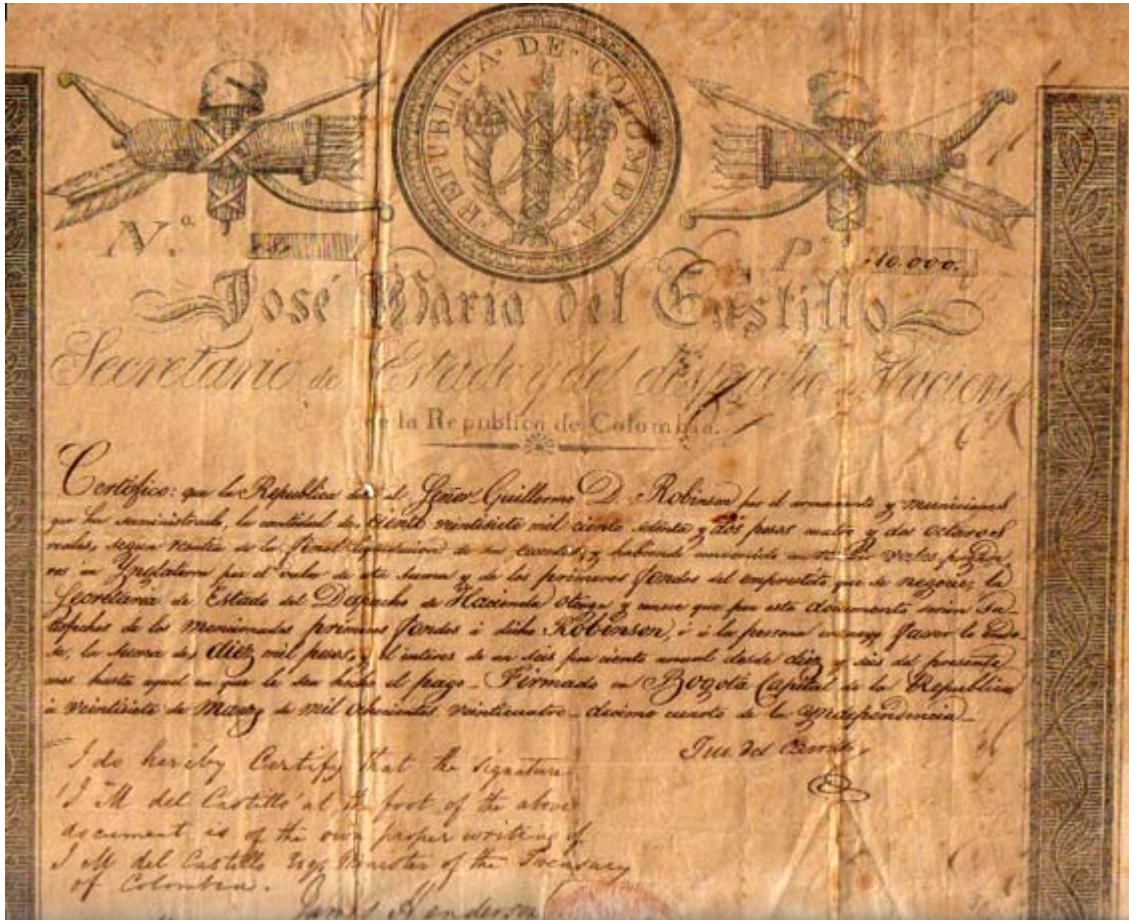 REPUBLICA DE COLOMBIA
N.º
P.s 10.000.
José Maria del Castillo
Secretario de Estado y del despacho de Hacien
de la Republica de Colombia.
Certifico: que la Republica debe al Señor Guillermo D. Robinson por el armamento y municiones
que ha suministrado, la cantidad de, ciento veintisiete mil ciento setenta y dos pesos cuatro y dos octavos
reales, segun consta de la final liquidacion de sus cuentas, y habiendo convenido vales
en Ynglaterra por el valor de esta suma y de los primeros fondos del emprestito que se negocie, la
Secretaria de Estado del Despacho de Hacienda otorga y conoce que por este documento serán sa-
tisfechos de los mencionados primeros fondos á dicho Robinson, ó á la persona cuyo favor lo endo-
se, la suma de, diez mil pesos, y el interes de un seis por ciento anual desde diez y seis del presente
mes hasta aquel en que le sea hecho el pago_ Firmado en Bogotá Capital de la Republica
á veintisiete de Marzo de mil ochocientos veinticuatro_ decimo cuarto de la Yndependencia_
I do hereby Certify that the signature
'J M del Castillo' at the foot of the above
document is of the own proper writing of
J M del Castillo Esq Minister of the Treasury
of Colombia.
James Henderson